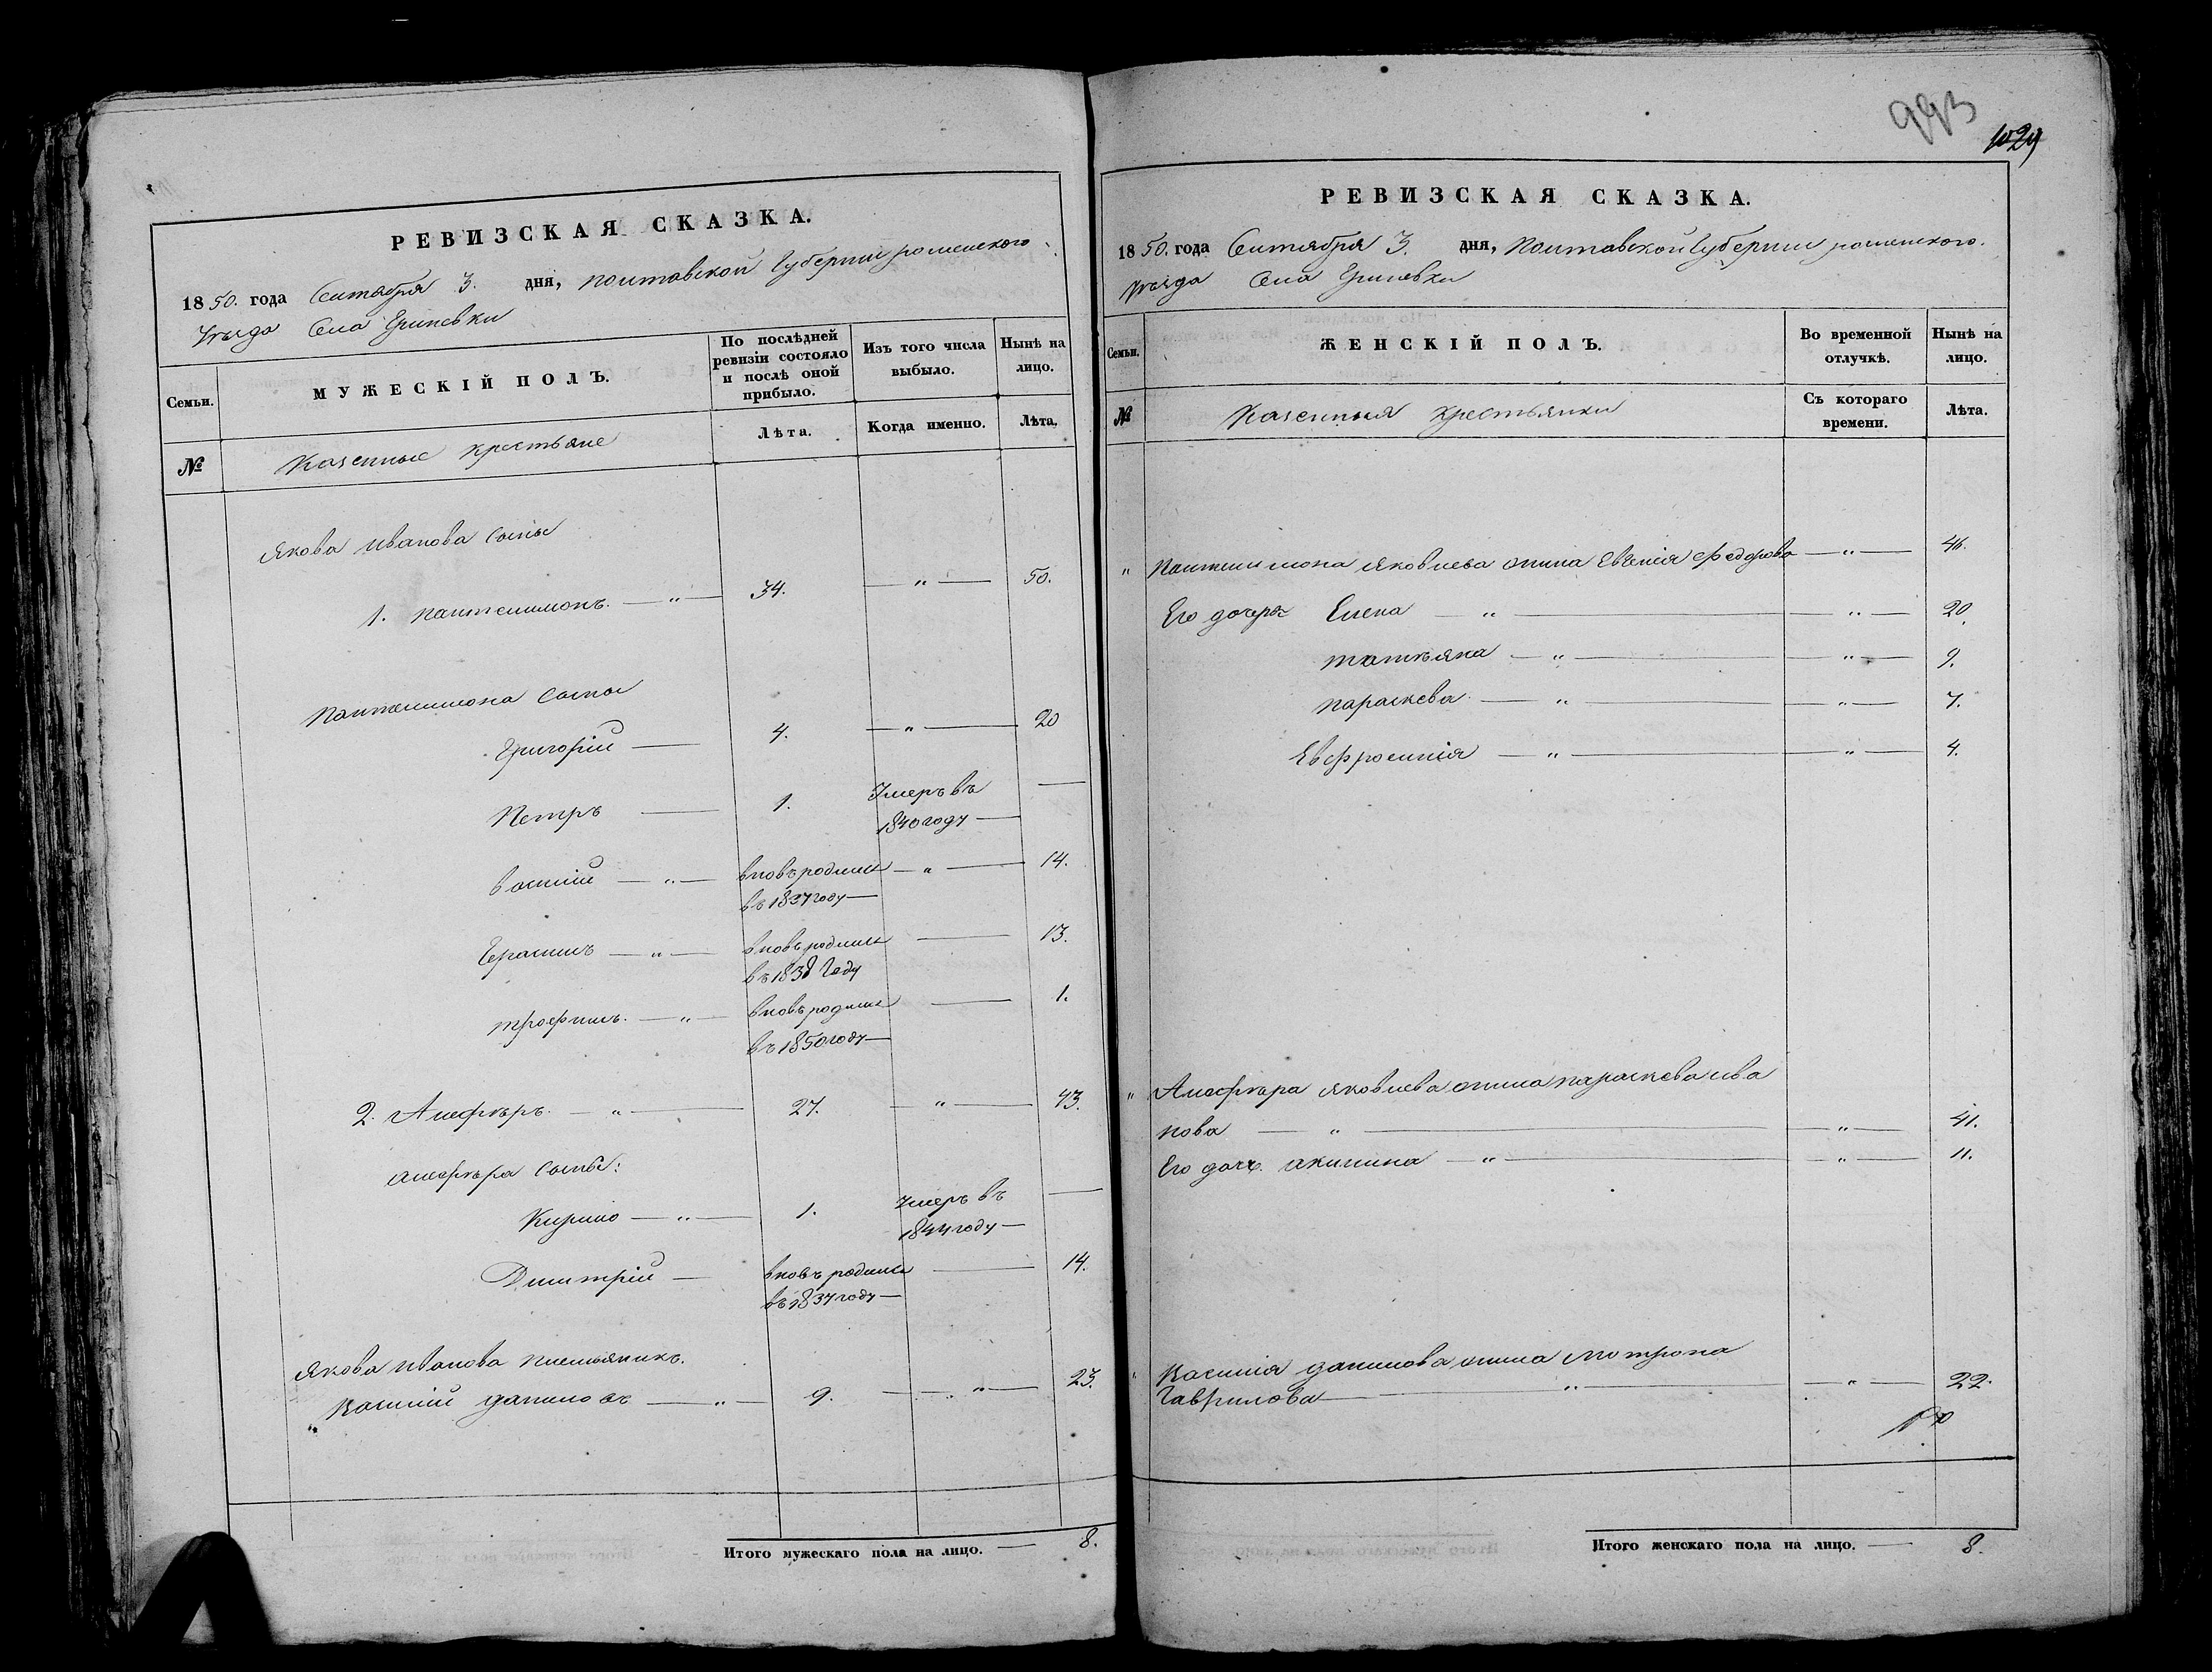 993
1029
РЕВИЗСКАЯ СКАЗКА.
1850. года Сентября 3. дня, полтавской Губерніи роменского
Уъезда Села Гриневки
Семьи.
МУЖЕСКІЙ ПОЛЪ.
По послѣдней ревизіи состояло и послѣ оной прибыло.
Изъ того числа выбыло.
Нынѣ на лицо.
№
Казенные крестьяне
Лѣта.
Когда именно.
Лѣта.
Якова Иванова Сыны
1. пантелимонъ. — „ — 34. — „ — 50.
Пантелимона Сыны
Григорій — 4. — „ — 20
Петръ — 1. Умеръ въ —
1840 году —
Василій — „ — вновь родился — „ — 14.
въ 1837 году —
Герасимъ — „ — вновь родился — 13.
въ 1838 Году
трофимъ. — „ — вновь родился — 1.
въ 1850 году —
2. Алефѣръ. — „ — 27. — „ — 43.
алефѣра Сыны:
Кирило — „ — 1. Умеръ въ —
1844 году —
Димитрій — вновь родился — 14.
въ 1837 году —
Якова Иванова племяникъ.
„ Василій даниловъ — „ — 9. — „ — 23.
Итого мужескаго пола на лицо. — 8.
РЕВИЗСКАЯ СКАЗКА.
1850. года Сентября 3. дня, Полтавской Губерніи роменского.
Уъезда Села Гриневки
Семьи.
ЖЕНСКІЙ ПОЛЪ.
Во временной отлучкѣ.
Нынѣ на лицо.
№
Казенныя крестьянки
Съ котораго времени.
Лѣта.
„ Пантелимона Яковлева жина Евгенія Федорова — „ — 46.
Его дочери Елена — „ — „ — 20.
татьяна — „ — „ — 9.
параскева — „ — „ — 7.
Евфросинія — „ — „ — 4.
„ Алефѣра Яковлева жина параскева ива
нова — „ — „ — 41.
Его дочь акилина — „ — „ — 11.
„ Василія данилова жина Мотрона
Гаврилова — „ — „ — 22.
Итого женскаго пола на лицо. — 8.